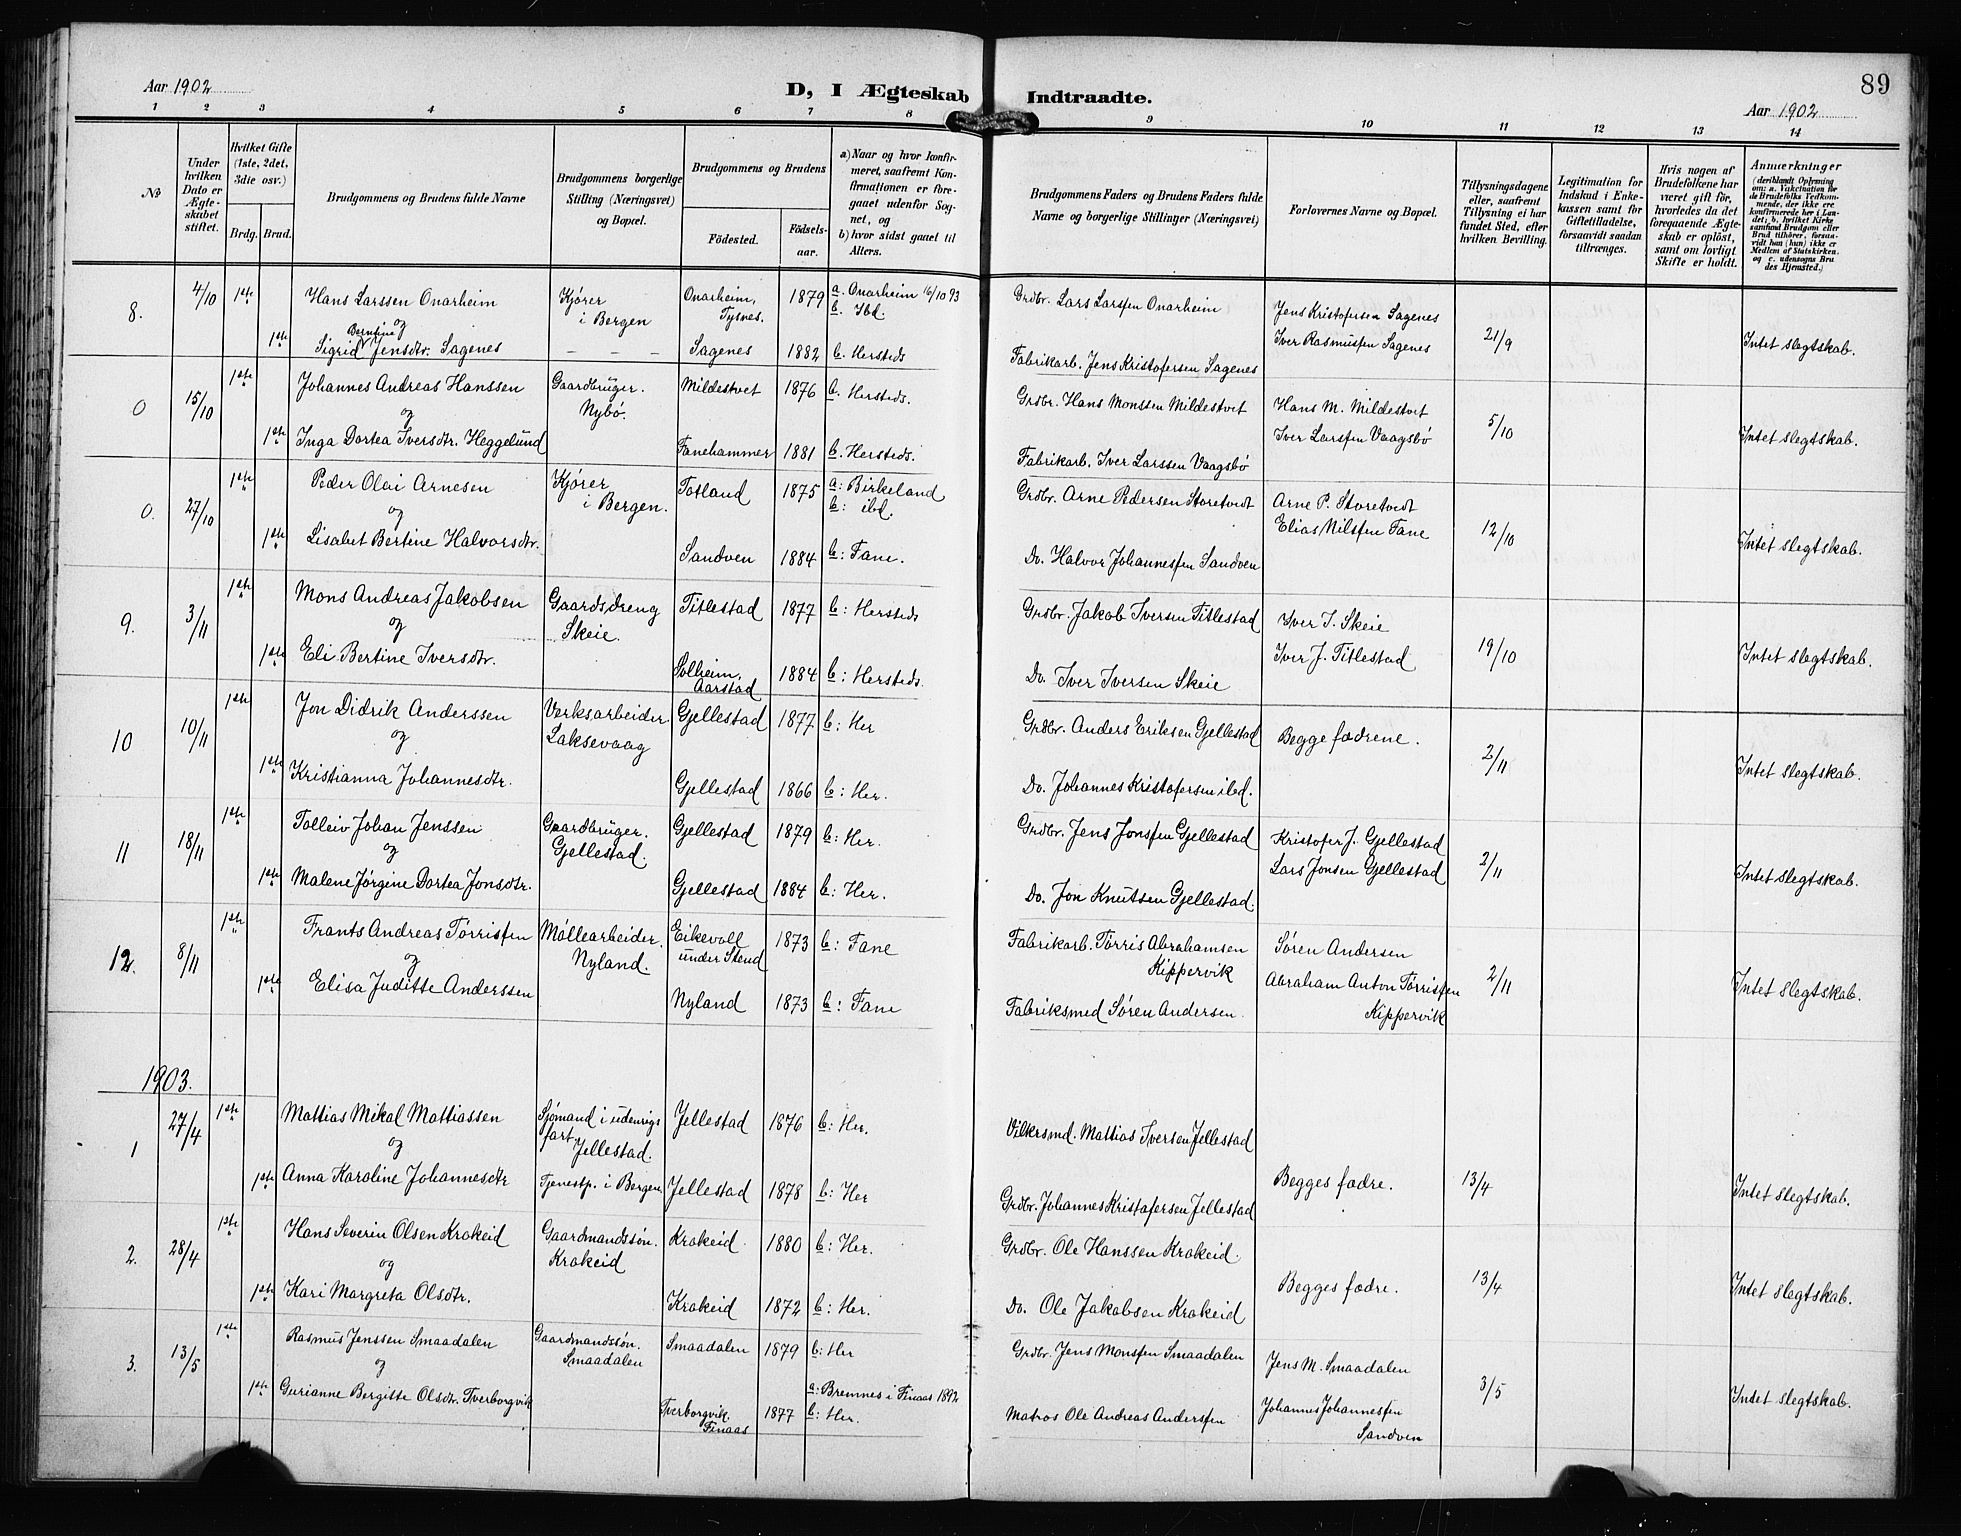 89
Aar 1902
D, I Ægteskab Indtraadte.
Aar 1902
1 2 3 4 5 6 7 8 9 10 11 12 13 14
№
Under hvilken Dato er Ægteskabet stiftet.
Hvilket Gifte (1ste, 2det, 3die osv.)
Brdg. Brud.
Brudgommens og Brudens fulde Navne
Brudgommens borgerlige Stilling (Næringsvei) og Bopæl.
Brudgommens og Brudens
Födested. Födselsaar.
a) Naar og hvor konfirmeret, saafremt Konfirmationen er foregaaet udenfor Sognet, og
b) hvor sidst gaaet til Alters.
Brudgommens Faders og Brudens Faders fulde Navne og borgerlige Stillinger (Næringsvei)
Forlovernes Navne og Bopæl.
Tillysningsdagene eller, saafremt Tillysning ei har fundet Sted, efter hvilken Bevilling.
Legitimation for Indskud i Enkekassen samt for Giftetilladelse, forsaavidt saadan tiltrænges.
Hvis nogen af Brudefolkene har været gift før, hvorledes da det foregaaende Ægteskab er opløst, samt om lovligt Skifte er holdt.
Anmærkninger
(deriblandt Oplysning om: a. Vakcination for de Brudefolks Vedkommende, der ikke ere konfirmerede her i Landet; b. hvilket Kirkesamfund Brudgom eller Brud tilhører, forsaavidt han (hun) ikke er Medlem af Statskirken, og c. udensogns Brudes Hjemsted.)
8. 4/10 1ste Hans Larssen Onarheim Kjører i Bergen Onarheim, Tysnes. 1879 a. Onarheim 16/10 93 b. Ibd. Grdbr. Lars Larsfen Onarheim Jens Kristofersen Sagenes
og
1ste Sigrid Berntine Jensdtr. Sagenes – – – Sagenes 1882 b. Hersteds Fabrikarb. Jens Kristofersen Sagenes Iver Rasmusfen Sagenes 21/9 Intet slegtskab.
0 15/10 1ste Johannes Andreas Hanssen Gaardbruger. Nybø. Mildestvet 1876 b. Hersteds. Grdbr. Hans Monssen Mildestvet Hans M. Mildestvet
og
1ste Inga Dortea Iversdtr. Heggelund Fanehammer 1881 b. Hersteds. Fabrikarb. Iver Larssen Vaagsbø Iver Larsfen Vaagsbø 5/10 Intet slegtskab.
0. 27/10 1ste Peder Olai Arnesen Kjører i Bergen. Totland 1875 a: Birkeland b: ibd. Grdbr. Arne Pedersen Storetvedt Arne P. Storetvedt
og
1ste Lisabet Bertine Halvorsdtr. Sandven 1884 b: Fane. Do. Halvor Johannesfen Sandven Elias Nilsfen Fane 12/10 Intet slegtskab.
9. 3/11 1ste Mons Andreas Jakobsen Gaardsdreng Skeie. Titlestad 1877 b: Hersteds Grdbr. Jakob Iversen Titlestad Iver I. Skeie
og
1ste Eli Bertine Iversdtr. Solheim, Aarstad 1884 b: Hersteds. Do. Iver Iversen Skeie Iver J. Titlestad 19/10 Intet slegtskab.
10 10/11 1ste Jon Didrik Anderssen Verksarbeider Laksevaag Gjellestad 1877 b: Her Grdbr. Anders Eriksen Gjellestad Begge fædrene.
og
1ste Kristianna Johannesdtr. Gjellestad 1866 b: Her. Do. Johannes Kristofersen ibd. 2/11 Intet slegtskab.
11 18/11 1ste Tolleiv Johan Jenssen Gaardbruger. Gjellestad. Gjellestad 1879 b: Her. Grdbr. Jens Jonsfen Gjellestad Kristofer J. Gjellestad
og
1ste Malene Jørgine Dortea Jonsdtr. Gjellestad 1884 b: Her. Do. Jon Knutsen Gjellestad. Lars Jonsen Gjellestad 2/11 Intet slegtskab.
12. 8/11 1ste Frants Andreas Tørrisfen Møllearbeider. Nyland. Eikevoll under Stend 1873 b: Fane Fabrikarb. Tørris Abrahamsen Kippervik Søren Andersen
og
1ste Elisa Juditte Anderssen Nyland 1873 b: Fane Fabriksmed Søren Andersen. Abraham Anton Tørrisfen Kippervik 2/11 Intet slegtskab.
1903.
1 27/4 1ste Mattias Mikal Mattiassen Sjømand i udenrigs fart Jellestad. Jellestad 1876 b: Her. Vilkersmd. Mattias Iversen Jellestad
og
1ste Anna Karoline Johannesdtr Tjenestp. i Bergen. Jellestad 1878 b: Her Grdbr. Johannes Kristofersen Jellestad Begges fædre. 13/4 Intet slegtskab.
2. 28/4 1ste Hans Severin Olsen Krokeid Gaardmandssøn. Krokeid Krokeid. 1880 b: Her. Grdbr. Ole Hanssen Krokeid.
og
1ste Kari Margreta Olsdtr. Krokeid 1872 b: Her. Do. Ole Jakobsen Krokeid Begges fædre. 13/4 Intet slegtskab.
3. 13/5 1ste Rasmus Jenssen Smaadalen Gaardmandssøn. Smaadalen Smaadalen 1879 b: Her Grdbr. Jens Monsfen Smaadalen Jens M. Smaadalen
og
1ste Gurianne Bergitte Olsdtr. Tverborgvik Tverborgvik. Finaas 1877 a: Bremnes i Finaas 1892 b: Her. Matros Ole Andreas Andersfen Johannes Johannesfen Sandven 3/5 Intet slegtskab.